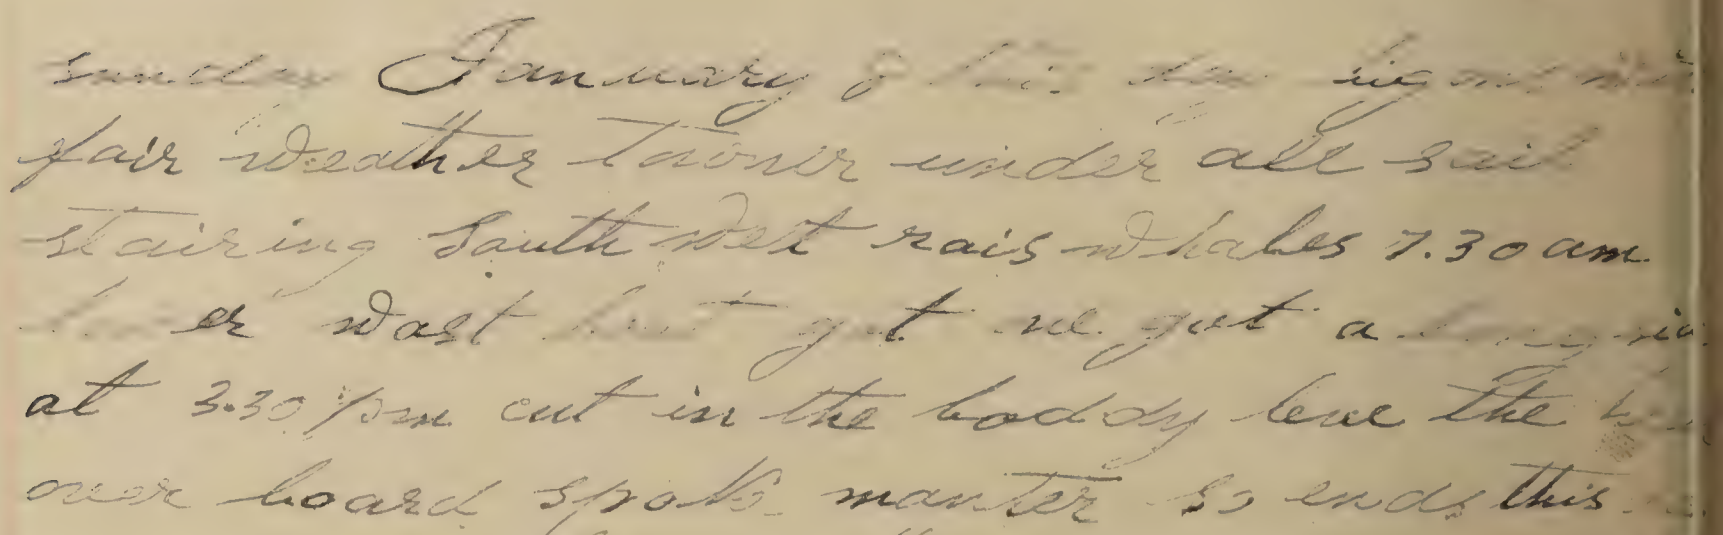 sunday January 8 this day begins with
fair weather Towner under all sail
stairing South West rais whales 7.30 am
er wast but got we got a
at 3.30 pm cut in the boddy leve the
over board spok manter so ends this